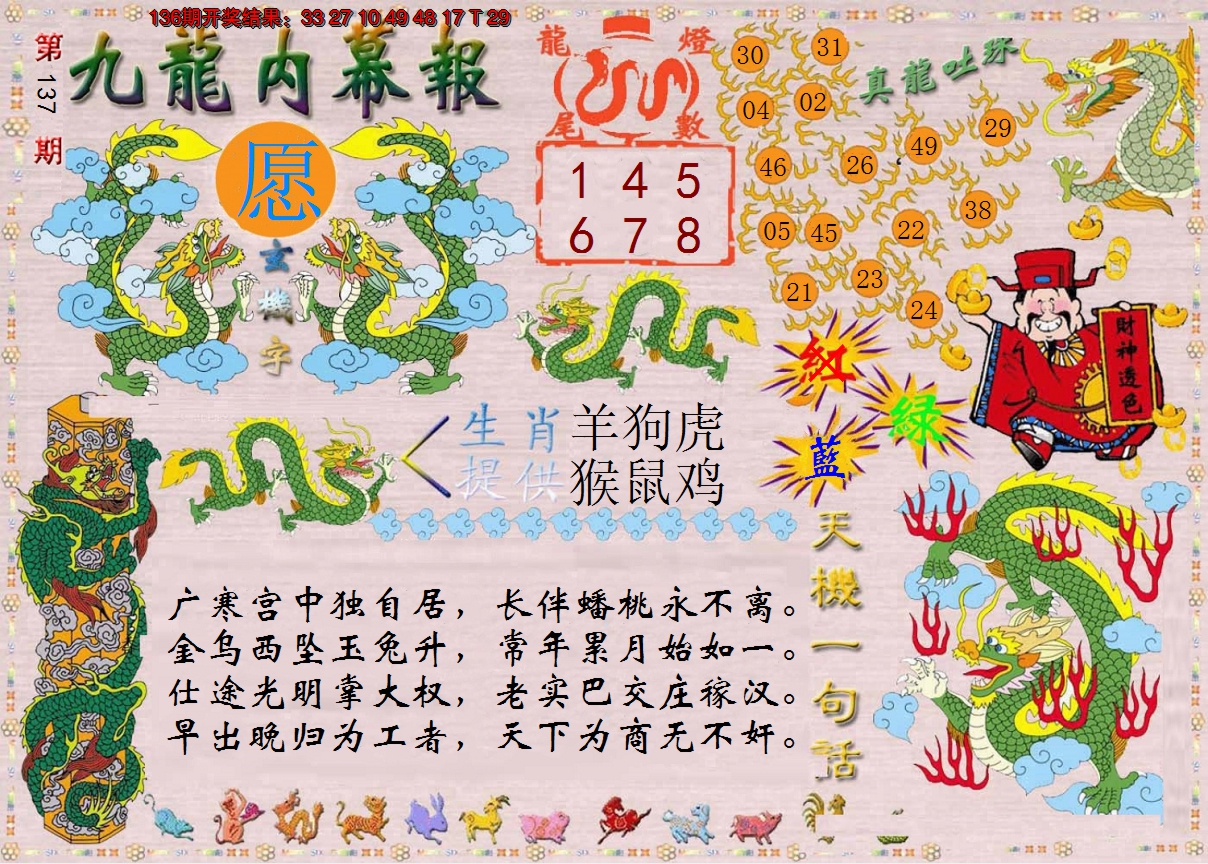 136期开奖结果：33 27 10 49 48 17 T 29
第137期
九龍内幕報
愿
玄機字
龍燈尾數
1 4 5
6 7 8
真龍吐珠
30 31
04 02
49 29
46 26
38
05 45 22
23
21 24
財神透色
紅
綠
藍
生肖 羊狗虎
提供 猴鼠鸡
天機一句話
广寒宫中独自居，长伴蟠桃永不离。
金乌西坠玉兔升，常年累月始如一。
仕途光明掌大权，老实巴交庄稼汉。
早出晚归为工者，天下为商无不奸。